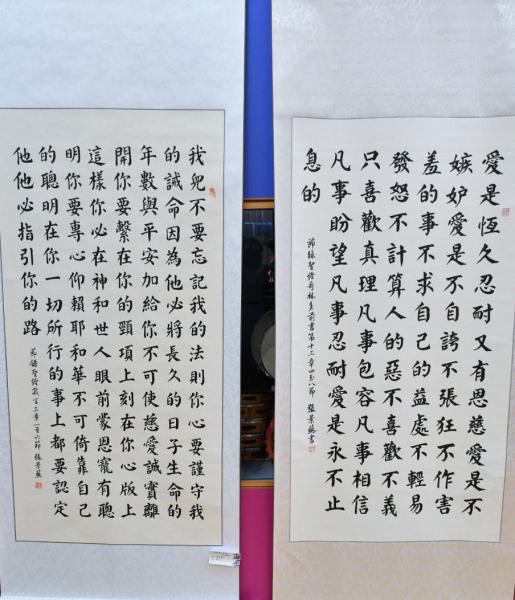 愛是恆久忍耐又有恩慈愛是不
嫉妒愛是不自誇不張狂不作害
羞的事不求自己的益處不輕易
發怒不計算人的惡不喜歡不義
只喜歡真理凡事包容凡事相信
凡事盼望凡事忍耐愛是永不止
息的
節錄聖經哥林多前書第十三章四至八節 張景書
我兒不要忘記我的法則你心要謹守我
的誡命因為他必將長久的日子生命的
年數與平安加給你不可使慈愛誠實離
開你要繫在你的頸項上刻在你心版上
這樣你必在神和世人眼前蒙恩寵有聰
明你要專心仰賴耶和華不可倚靠自己
的聰明在你一切所行的事上都要認定
他他必指引你的路
節錄聖經箴言三章一至六節 張景